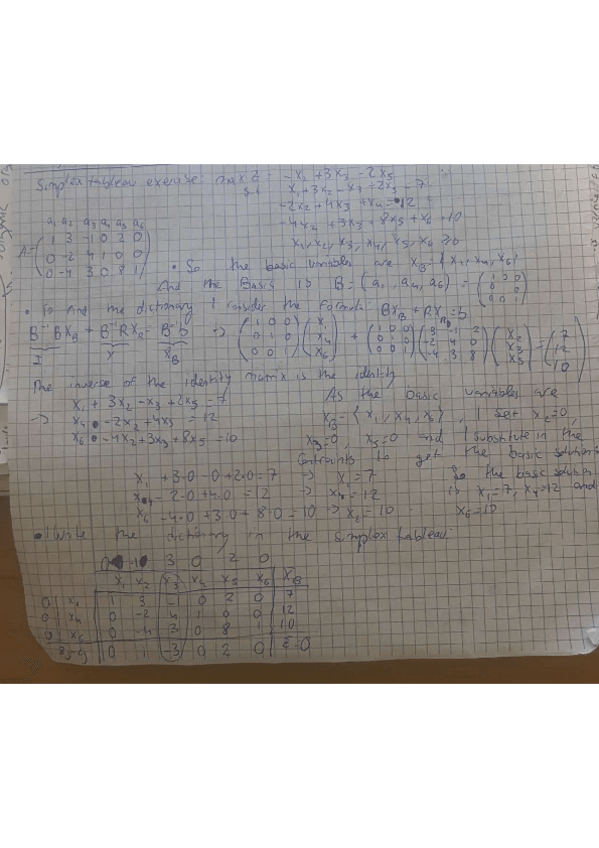 Simplex tableau exercise: max z = -x2 + 3x3 - 2x5
s.t. x1 + 3x2 - x3 + 2x5 = 7
-2x2 + 4x3 + x4 = 12
-4x2 + 3x3 + 8x5 + x6 = 10
x1, x2, x3, x4, x5, x6 ≥ 0
a1 a2 a3 a4 a5 a6
A = ( 1 3 -1 0 2 0
0 -2 4 1 0 0
0 -4 3 0 8 1 )
• So the basic variables are xB = { x1, x4, x6 }
And the Basis is B = (a1, a4, a6) = ( 1 0 0
0 0
0 0 1 )
• To find the dictionary I consider the formula: BxB + RxR = b
B⁻¹BxB + B⁻¹RxR = B⁻¹b => ( 1 0 0 / 0 1 0 / 0 0 1 ) ( x1 / x4 / x6 ) + ( 1 0 0 / 0 1 0 / 0 0 1 ) ( 3 -1 2 / -2 4 0 / -4 3 8 ) ( x2 / x3 / x5 ) = ( 7 / 12 / 10 )
I Y xB
The inverse of the identity matrix is the identity
x1 + 3x2 - x3 + 2x5 = 7
-> x4 - 2x2 + 4x3 = 12
x6 - 4x2 + 3x3 + 8x5 = 10
As the basic variables are
xB = { x1, x4, x6 }, I set x2=0,
x3=0, x5=0 and I substitute in the
contraints to get the basic solution
x1 + 3·0 - 0 + 2·0 = 7 -> x1 = 7
x4 - 2·0 + 4·0 = 12 -> x4 = 12
x6 - 4·0 + 3·0 + 8·0 = 10 -> x6 = 10
So the basic solution
is x1=7, x4=12 and
x6=10
• I write the dictionary in the simplex tableau:
0 -1 3 0 2 0
x1 x2 x3 x4 x5 x6 xB
0 x1 1 3 -1 0 2 0 7
0 x4 0 -2 4 1 0 0 12
0 x6 0 -4 3 0 8 1 10
zj-cj 0 1 -3 0 2 0 z=0